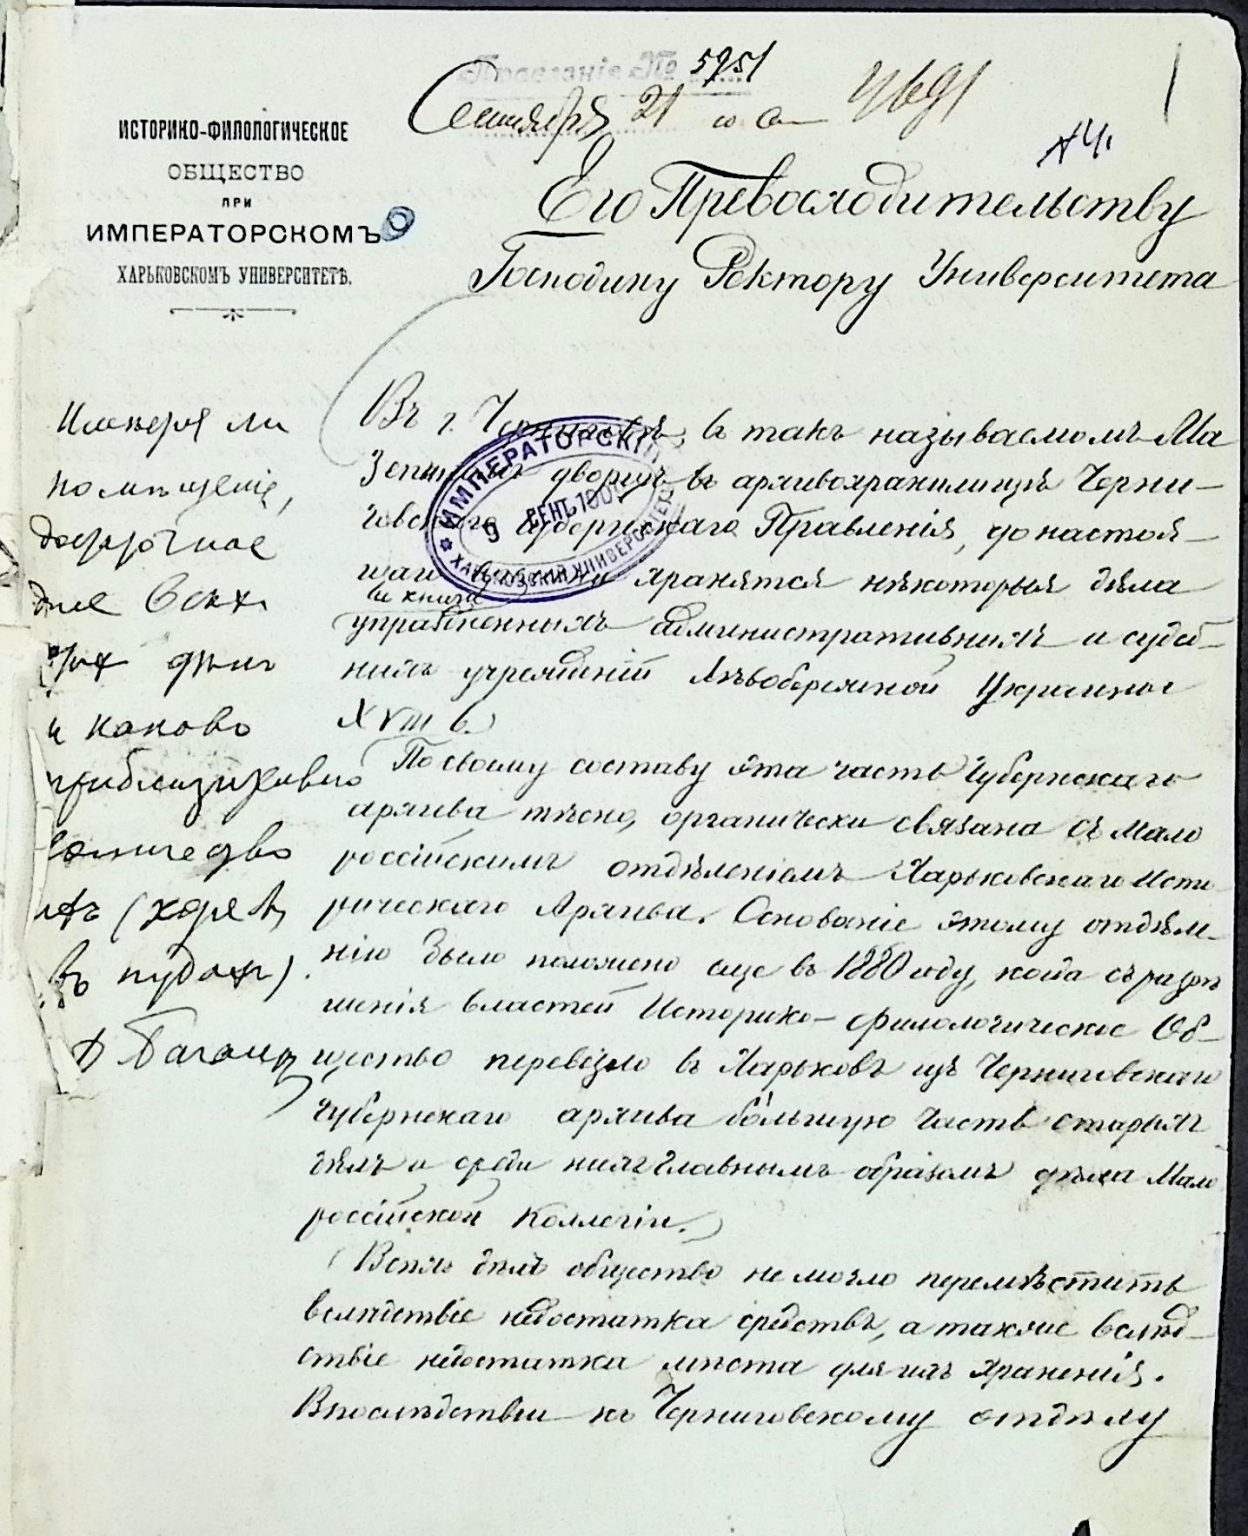 Правленіе № 5951
Сентября 21
ИСТОРИКО-ФИЛОЛОГИЧЕСКОЕ
ОБЩЕСТВО
ПРИ
ИМПЕРАТОРСКОМЪ
ХАРЬКОВСКОМЪ УНИВЕРСИТЕТѢ.
Его Превосходительству
Господину Ректору Университета
Въ г. Черниговѣ, въ такъ называемомъ Ма
зепиномъ дворцѣ въ архивохранилищѣ Черни-
говскаго Губернскаго Правленія, до настоя-
щаго времени хранятся нѣкоторыя дѣла
и книги
упраздненныхъ административныхъ и судеб-
ныхъ учрежденій Лѣвобережной Украины
XVIII в.
По своему составу эта часть Губернскаго
архива тѣсно, органически связана съ Мало
россійскимъ отдѣленіемъ Харьковскаго Исто
рическаго Архива. Основаніе этому отдѣле-
нію было положено еще въ 1880 году, когда съ разрѣ
шенія властей Историко-филологическое Об-
щество перевезло въ Харьковъ изъ Черниговскаго
Губернскаго архива бо́льшую часть старыхъ
дѣлъ и среди нихъ главнымъ образомъ дѣла Мало
россійской Коллегіи.
Всѣхъ дѣлъ общество не могло перемѣстить
вслѣдствіе недостатка средствъ, а также вслѣд-
ствіе недостатка мѣста для ихъ храненія.
Впослѣдствіи къ Черниговскому отдѣлу
ИМПЕРАТОРСКІЙ
9 СЕНТ.
ХАРЬКОВСКІЙ УНИВЕРСИТЕТЪ
Имѣется ли
помѣщеніе,
достаточное
для всѣхъ
дѣлъ
и каково
приблизительно
количество
ихъ (хотя бы
въ пудахъ).
Д Багалѣй